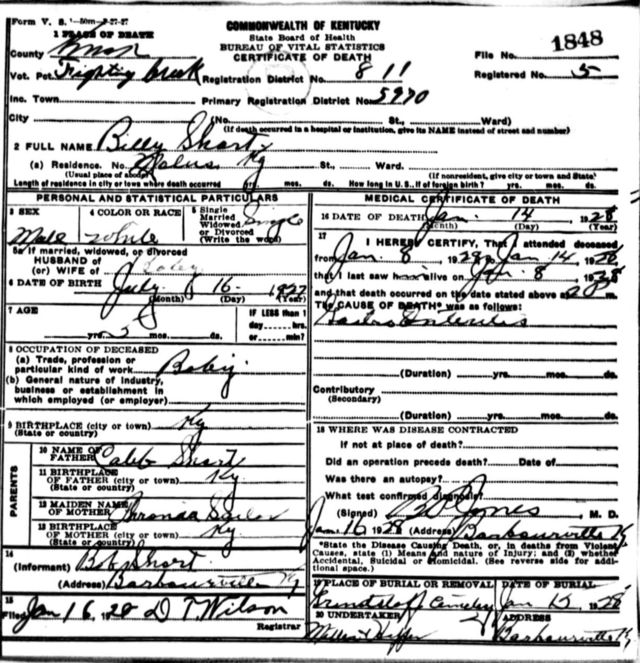 Form V. S. 1-50m-9-27-27
COMMONWEALTH OF KENTUCKY
State Board of Health
BUREAU OF VITAL STATISTICS
CERTIFICATE OF DEATH
1 PLACE OF DEATH
County Knox
File No. 1848
Vot. Pct. Fighting Creek Registration District No. 811 Registered No. 5
Inc. Town Primary Registration District No. 5970
City (No. St., Ward)
(If death occurred in a hospital or institution, give its NAME instead of street and number)
2 FULL NAME Billy Short
(a) Residence. No. Ky St., Ward.
(Usual place of abode) (If nonresident, give city or town and State)
Length of residence in city or town where death occurred yrs. mos. ds. How long in U. S., if of foreign birth? yrs. mos. ds.
PERSONAL AND STATISTICAL PARTICULARS
3 SEX Male
4 COLOR OR RACE White
5 Single Married Widowed or Divorced (Write the word) Single
5a If married, widowed, or divorced
HUSBAND of
(or) WIFE of
6 DATE OF BIRTH July 16 1927
(Month) (Day) (Year)
7 AGE IF LESS than 1
yrs. 5 mos. ds. day hrs. or min?
8 OCCUPATION OF DECEASED
(a) Trade, profession or
particular kind of work Baby
(b) General nature of industry,
business or establishment in
which employed (or employer)
9 BIRTHPLACE (city or town) Ky
(State or country)
PARENTS
10 NAME OF FATHER Caleb Short
11 BIRTHPLACE
OF FATHER (city or town) Ky
(State or country)
12 MAIDEN NAME
OF MOTHER
13 BIRTHPLACE Ky.
OF MOTHER (city or town)
(State or country)
14
(Informant) Bob Short
(Address) Barbourville Ky
15
Filed Jan 16 1928 D T Wilson
Registrar
MEDICAL CERTIFICATE OF DEATH
16 DATE OF DEATH Jan. 14 1928
(Month) (Day) (Year)
17
I HEREBY CERTIFY, That I attended deceased
from Jan. 8 1928 to Jan 14 1928
that I last saw him alive on Jan. 8 1928
and that death occurred on the date stated above at m.
The CAUSE OF DEATH* was as follows:
Gastro Enteritis
(Duration) yrs. mos. ds.
Contributory
(Secondary)
(Duration) yrs. mos. ds.
18 WHERE WAS DISEASE CONTRACTED
If not at place of death?
Did an operation precede death? Date of
Was there an autopsy?
What test confirmed diagnosis?
(Signed) Jones M. D.
Jan. 16 1928 (Address) Barbourville Ky
*State the Disease Causing Death, or, in deaths from Violent
Causes, state (1) Means and nature of Injury; and (2) whether
Accidental, Suicidal or Homicidal. (See reverse side for addi-
tional space.)
19 PLACE OF BURIAL OR REMOVAL DATE OF BURIAL
Cemetery Jan 15 1928
20 UNDERTAKER ADDRESS
Barbourville Ky